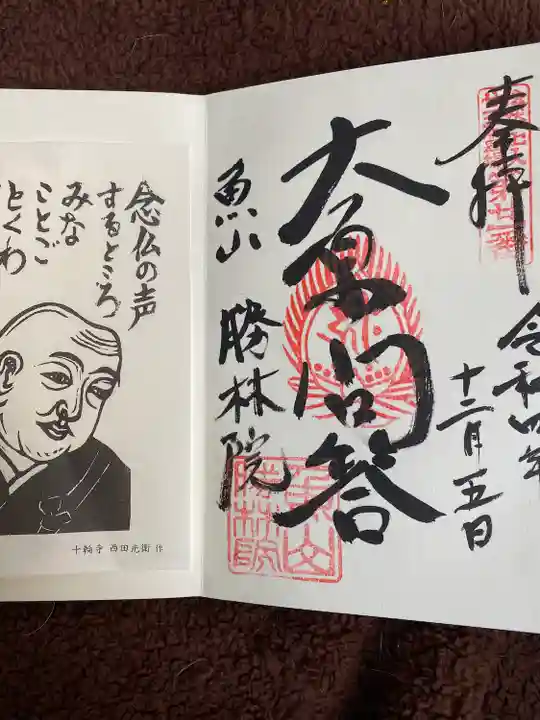 奉拝
令和四年
十二月五日
大原問答
魚山 勝林院
念仏の声
するところ
みな
ことご
とくわ
十輪寺 西田光衛 作